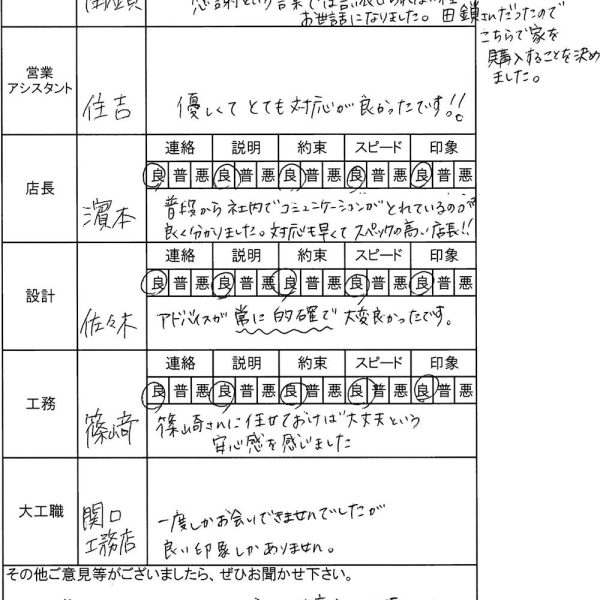 お世話になりました。田鎖さんだったので
こちらで家を
購入することを決め
ました。
営業
アシスタント
住吉
優しくてとても対応が良かったです!!
連絡 説明 約束 スピード 印象
店長
良 普 悪 良 普 悪 良 普 悪 良 普 悪 良 普 悪
濱本
普段から社内でコミュニケーションがとれているのが
良く分かりました。対応も早くてスペックの高い店長!!
連絡 説明 約束 スピード 印象
設計
良 普 悪 良 普 悪 良 普 悪 良 普 悪 良 普 悪
佐々木
アドバイスが常に的確で大変良かったです。
連絡 説明 約束 スピード 印象
工務
良 普 悪 良 普 悪 良 普 悪 良 普 悪 良 普 悪
篠崎
篠崎さんに任せておけば大丈夫という
安心感を感じました
大工職
関口
工務店
一度しかお会いできませんでしたが
良い印象しかありません。
その他ご意見等がございましたら、ぜひお聞かせ下さい。